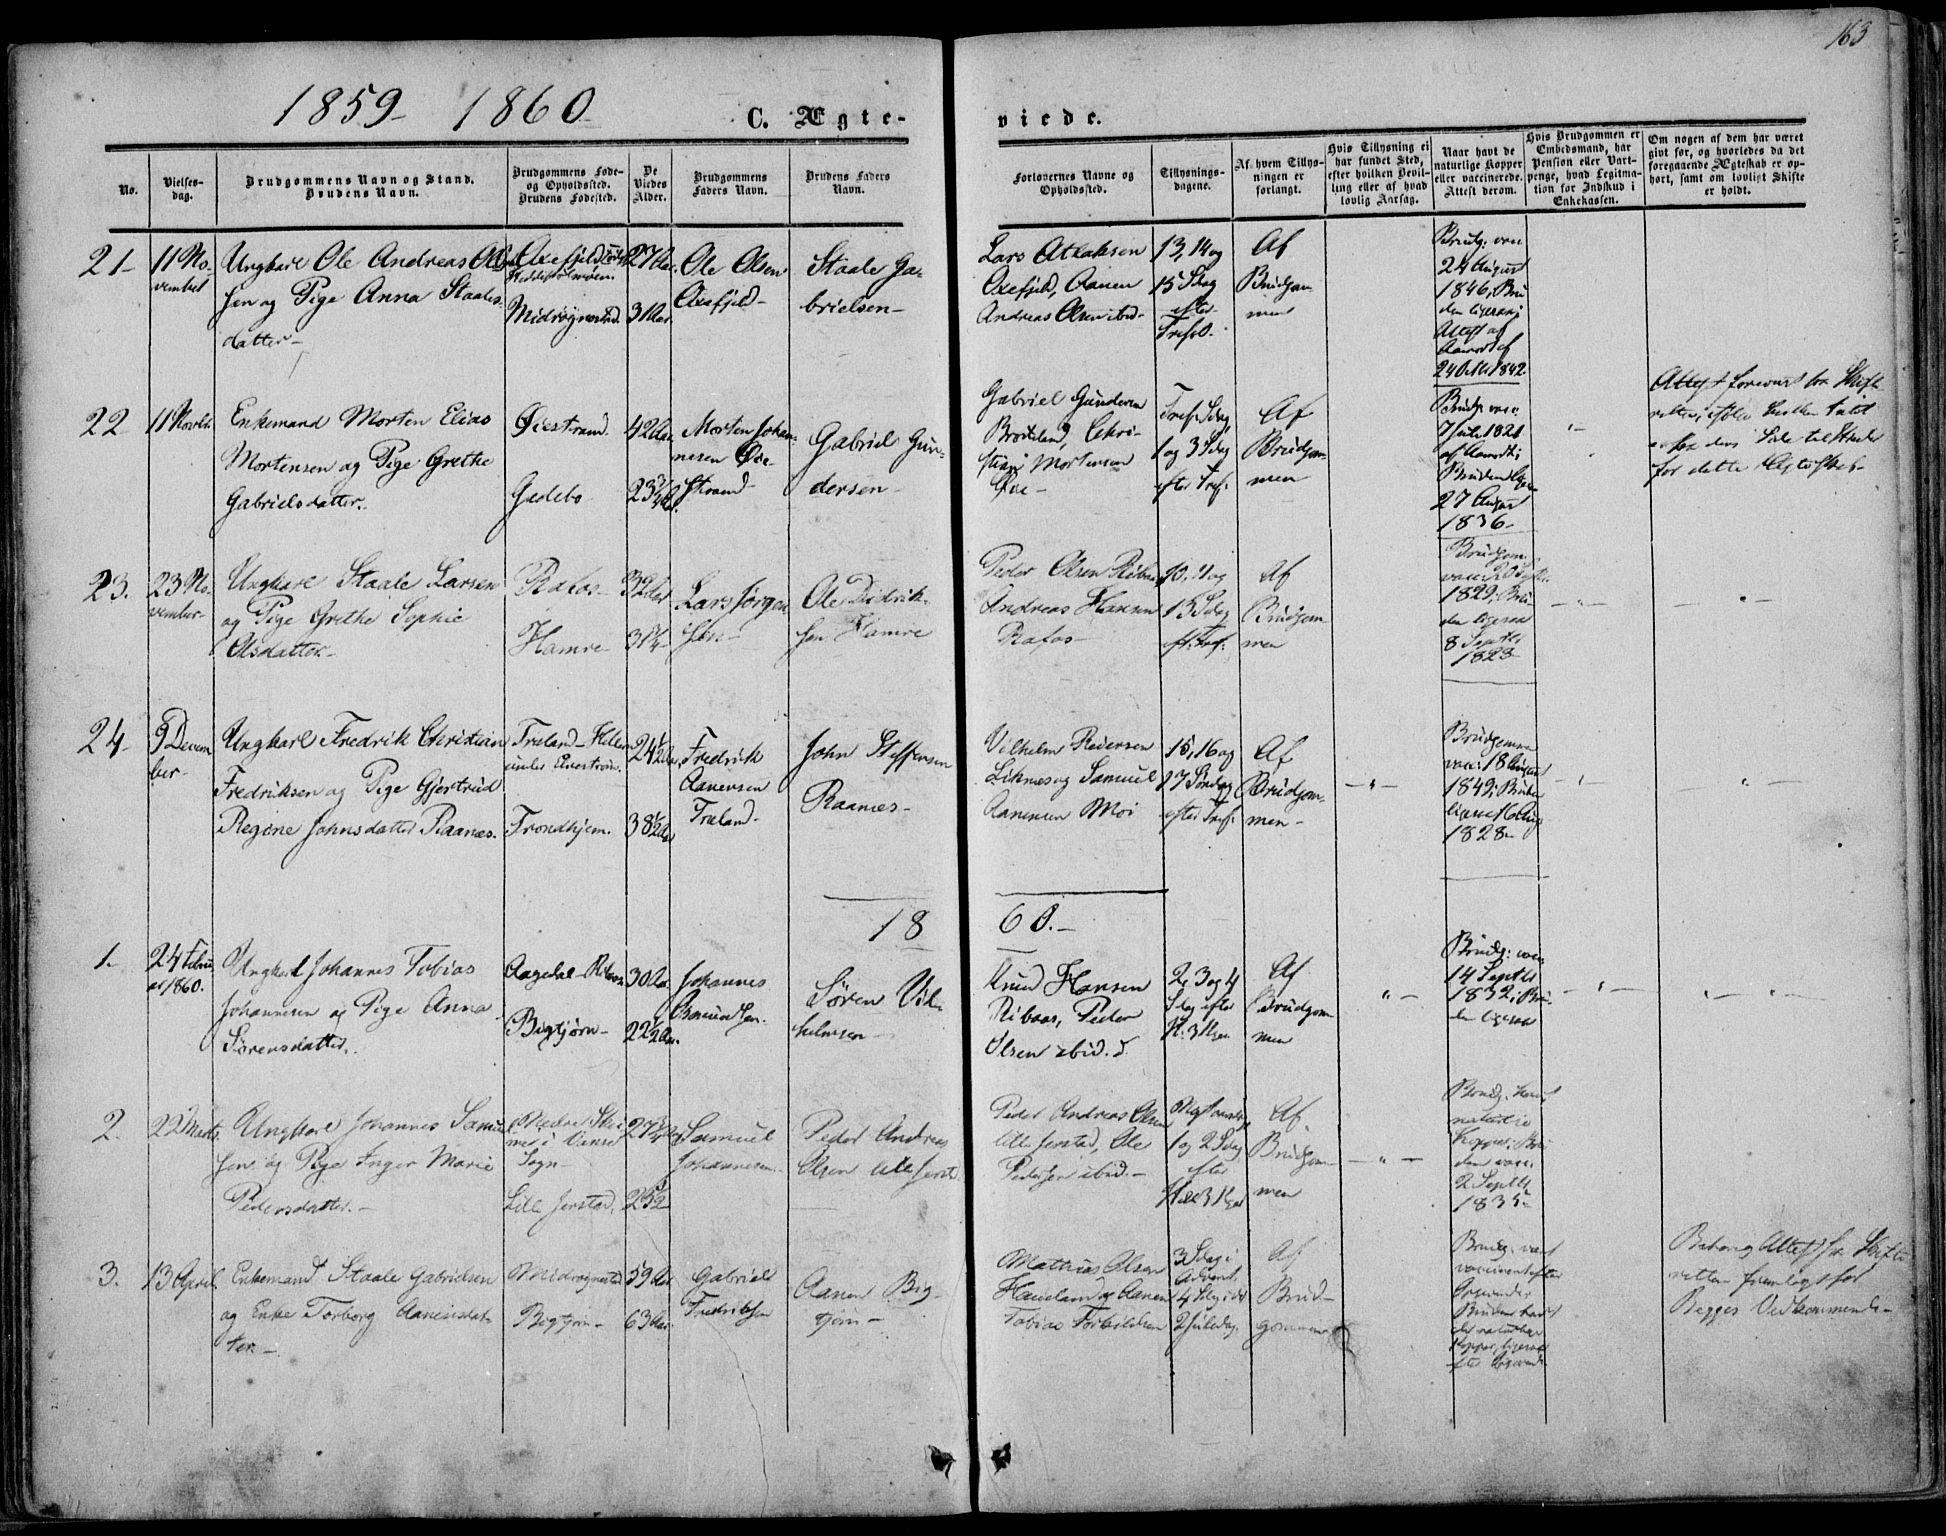 163
1859- 1860
C. Ægte-
viede.
No.
Vielses-
dag.
Brudgommens Navn og Stand.
Brudens Navn.
Brudgommens Føde-
og Opholdssted.
Brudens Fødested.
De
Viedes
Alder.
Brudgommens
Faders Navn.
Brudens Faders
Navn.
Forlovernes Navne og
Opholdssted.
Tillysnings-
dagene.
Af hvem Tillys-
ningen er
forlangt.
Hvis Tillysning ei
har fundet Sted,
efter hvilken Bevil-
ling eller af hvad
lovlig Aarsag.
Naar havt de
naturlige Kopper
eller vaccinerede.
Attest derom.
Hvis Brudgommen er
Embedsmand, har
Pension eller Vart-
penge, hvad Legitima-
tion for Indskud i
Enkekassen.
Om nogen af dem har været
gift før, og hvorledes da det
foregaaende Ægteskab er op-
hørt, samt om lovligt Skifte
er holdt.
21-
11 No-
vember
Ungkarl Ole Andreas Ol-
sen og Pige Anna Staales-
datter-
Oxefjeld
Midrøgnestad
27 Aar
31 Aar
Ole Olsen
Oxefjeld-
Staale Ga-
brielsen-
Lars Atlaksen
Oxefjeld, Aanen
Andreas Olsen ibid-
13, 14 og
15 Sdag
efter
Trefol.
Af
Brudgom
men
Brudg. vac
24 August
1846, Bru
den ligesaa
Attest af
24 Octb. 1842
22
11 Novbr.
Enkemand Morten Elias
Mortensen og Pige Grethe
Gabrielsdatter.
Øiestrand
Gedebo
42 Aar
23 3/4
Morten Johan-
nesen Øie-
strand-
Gabriel Gun-
dersen-
Gabriel Gundersen
Brodeland, Chri-
stian Mortensen
Øie-
Tref. Sdag
1 og 3 Sdag
efter Tref.
Af
Brudgom-
men
Brudg. vac.
7 Juli 1821
Bruden
27 August
1836-
for dette Ægteskab-
23.
23 No-
vember-
Ungkarl Staale Larsen
og Pige Grethe Sophie
Olsdatter-
Rafos-
Hamre-
32 Aar
31 3/4
Lars Jørgen
sen-
Ole Didrik-
sen Hamre
Peder Olsen
Andreas Hansen
Rafos-
10, 11 og
13 Sdag
eft. Tref.
Af
Brudgom
men
Brudgom
1829, Bru-
den ligesaa
8 Septbr
1828
24-
9 Decem
ber-
Ungkarl Fredrik Christian
Fredriksen og Pige Gjertrud
Regine Johnsdatter Raanæs.
Træland-
Trondhjem.
24 1/2 Aar
38 1/2 Aar
Fredrik
Aanensen
Træland-
John Steffensen
Raanæs-
Vilhelm Pedersen
Liknes og Samuel
Aanensen Moi
15, 16 og
17 Søndag
efter Tref.
Af
Brudgom-
men-
Brudgommen
vac. 18 August
1842, Bruden
1828-
18 60.-
1.
24 Febru
ar 1860.
Ungkarl Johannes Tobias
Johannesen og Pige Anna
Sørensdatter.
Aagedal-
Bigtjørn-
30 Aar
22 1/2 Aar.
Johannes
Søren Vil-
helmsen-
Knud Hansen
Ribaas, Peder
Olsen ibid.
2, 3 og 4
Sdag efter
H. 3 Kgr.
Af
Brudgom
men
Brudg: vac
14 Septbr
1832, Bru-
den ligesaa
2.
22 Marts.
Ungkarl Johannes Samuel
sen og Pige Inger Marie
Pedersdatter.-
Sogn-
Lille Jerstad.
27 3/4
25 1/2
Samuel
Johannesen
Peder Andreas
Olsen lille Jerst
Peder Andreas Olsen
lille Jerstad, Ole
Pedersen ibid.-
1 og 2 Sdag
efter
Hell 3 Kgr
Af
Brudgom
men
Brudg. havt
naturlie
Kopper, Bru
den vac.
2 Septbr
1835
3.
13 April
Enkemand Staale Gabrielsen
og Enke Torborg Aanensdat-
ter.-
Midrøgnestad
Bigtjørn-
59 Aar
63 Aar
Gabriel
Fredriksen
Aanen Big-
tjørn-
Mathias Olsen
Haueland og Aanen
Tobias Torkildsen
3 Sdag i
Advent,
4 Sdag
2 Juledag.
Af
Brud-
gommen
Brudg. vac
Bruden havt
de naturlige
Kopper, ligesaa
Attest fra Skifte
retten fremlagt for
Begges Vedkommende-